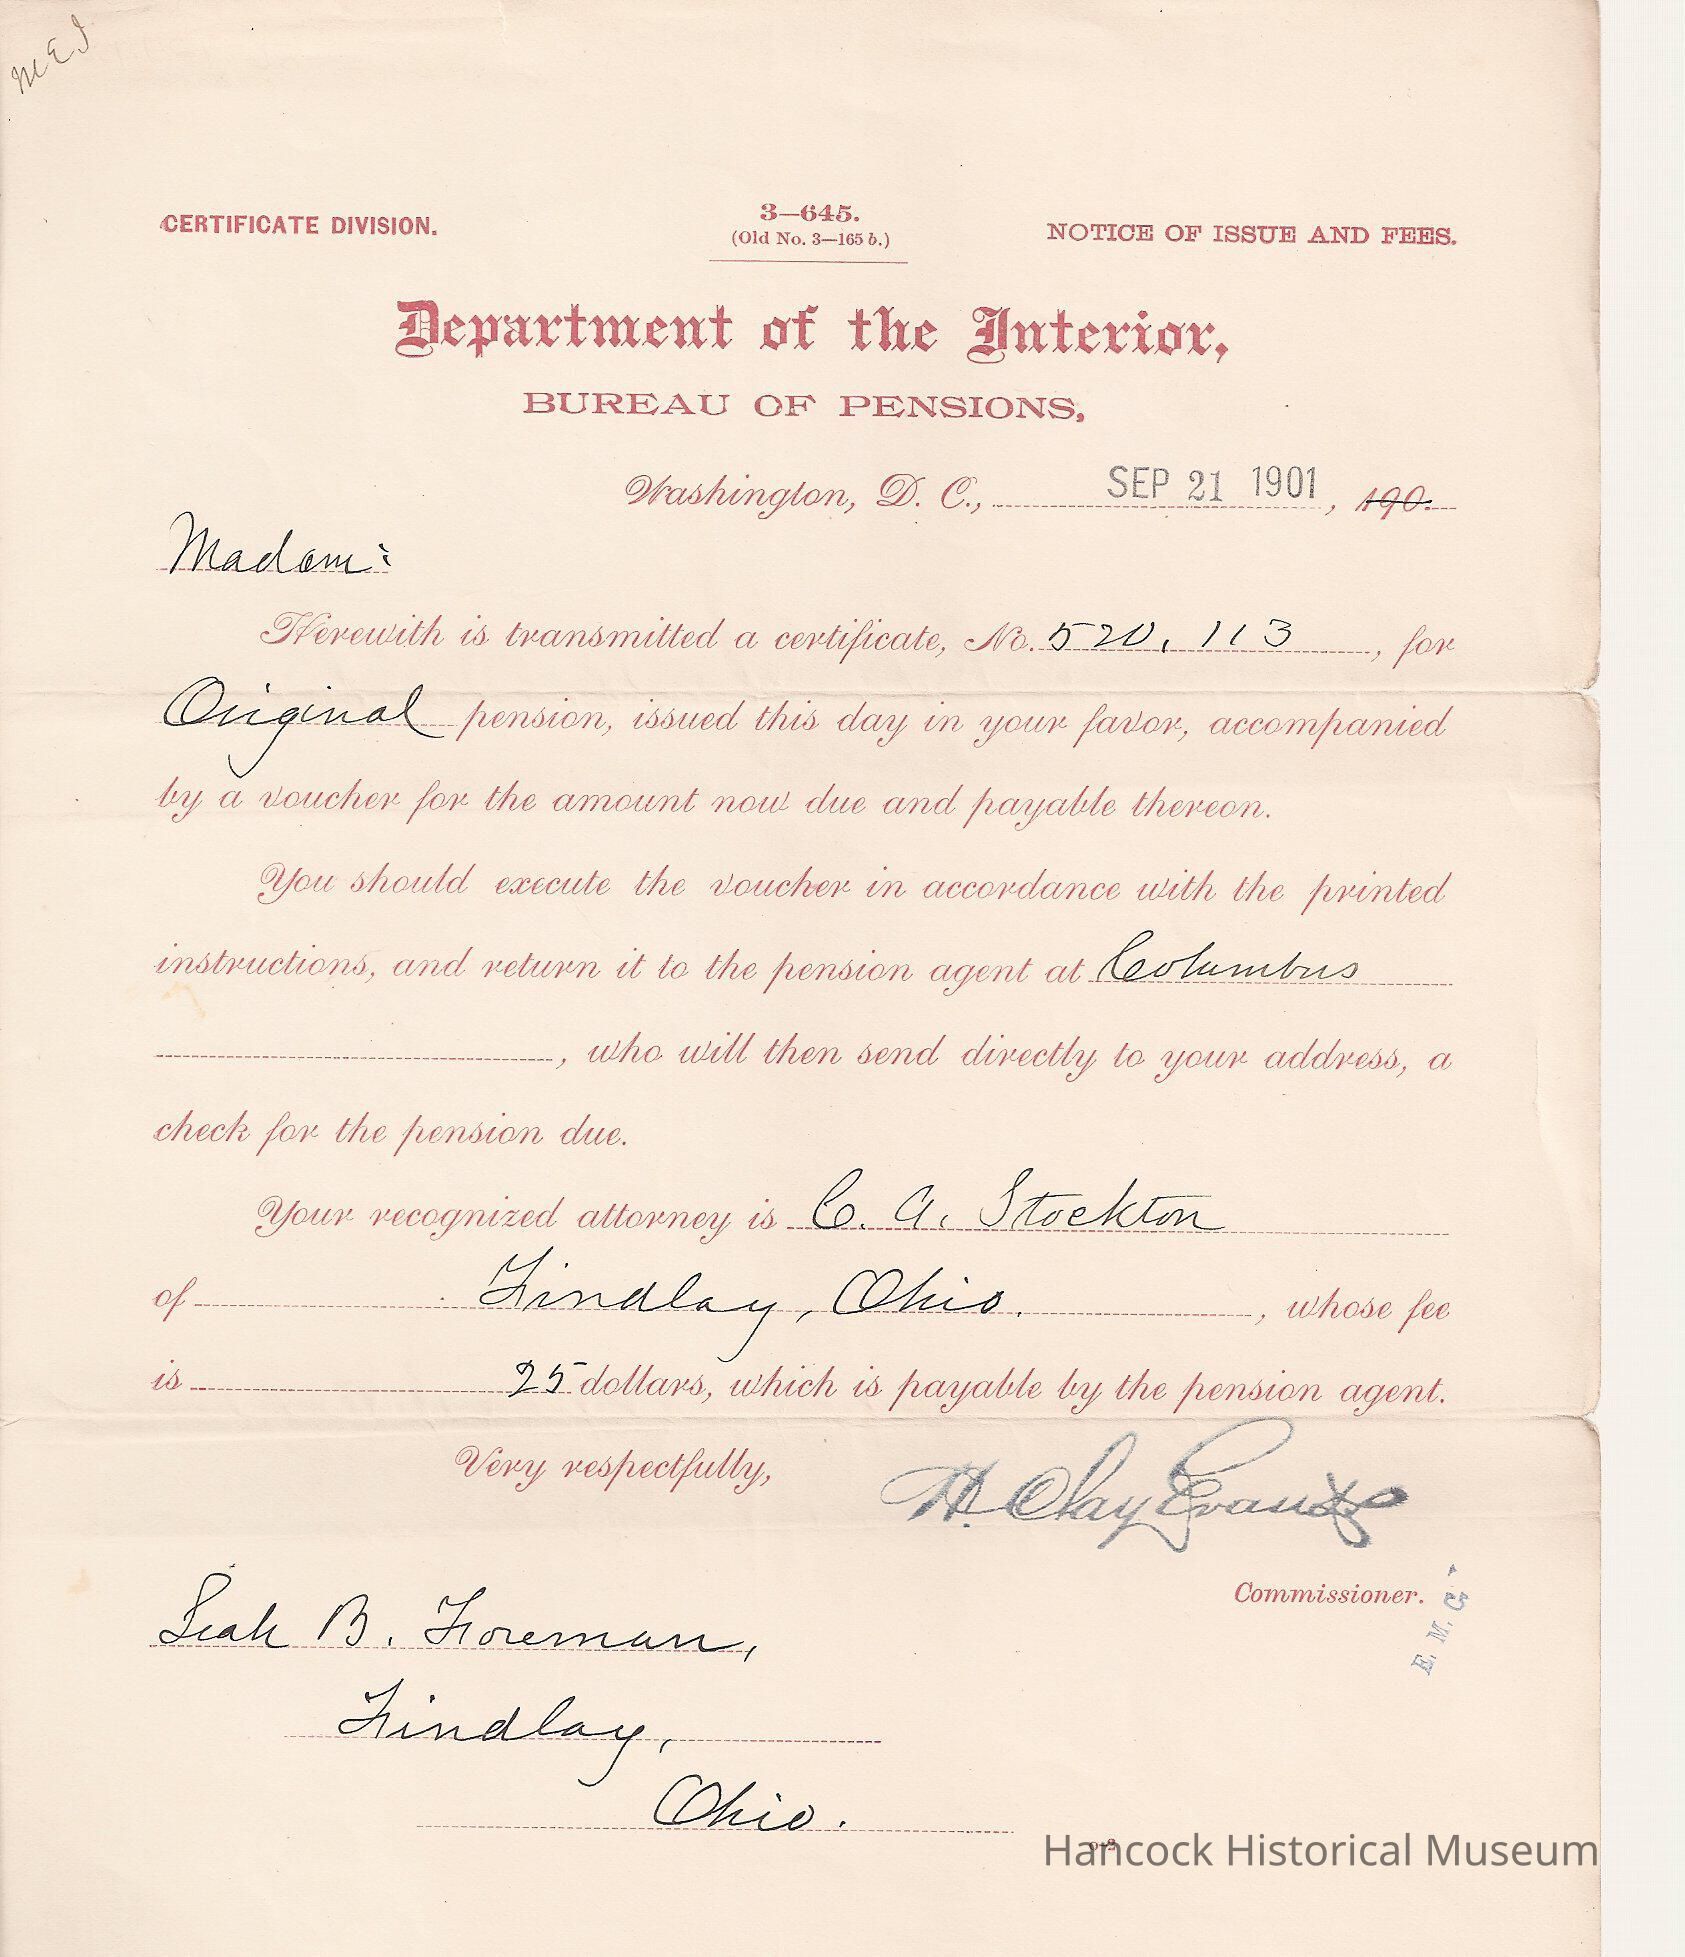 MEI
CERTIFICATE DIVISION.
3—645.
(Old No. 3—165 b.)
NOTICE OF ISSUE AND FEES.
Department of the Interior,
BUREAU OF PENSIONS,
Washington, D. C., SEP 21 1901, 190
Madam:
Herewith is transmitted a certificate, No. 520,113, for
Original pension, issued this day in your favor, accompanied
by a voucher for the amount now due and payable thereon.
You should execute the voucher in accordance with the printed
instructions, and return it to the pension agent at Columbus
, who will then send directly to your address, a
check for the pension due.
Your recognized attorney is C. A. Stockton
of Findlay, Ohio., whose fee
is 25 dollars, which is payable by the pension agent.
Very respectfully,
H. Clay Evans
Commissioner.
E. M. C.
Leah B. Foreman,
Findlay,
Ohio.
Hancock Historical Museum